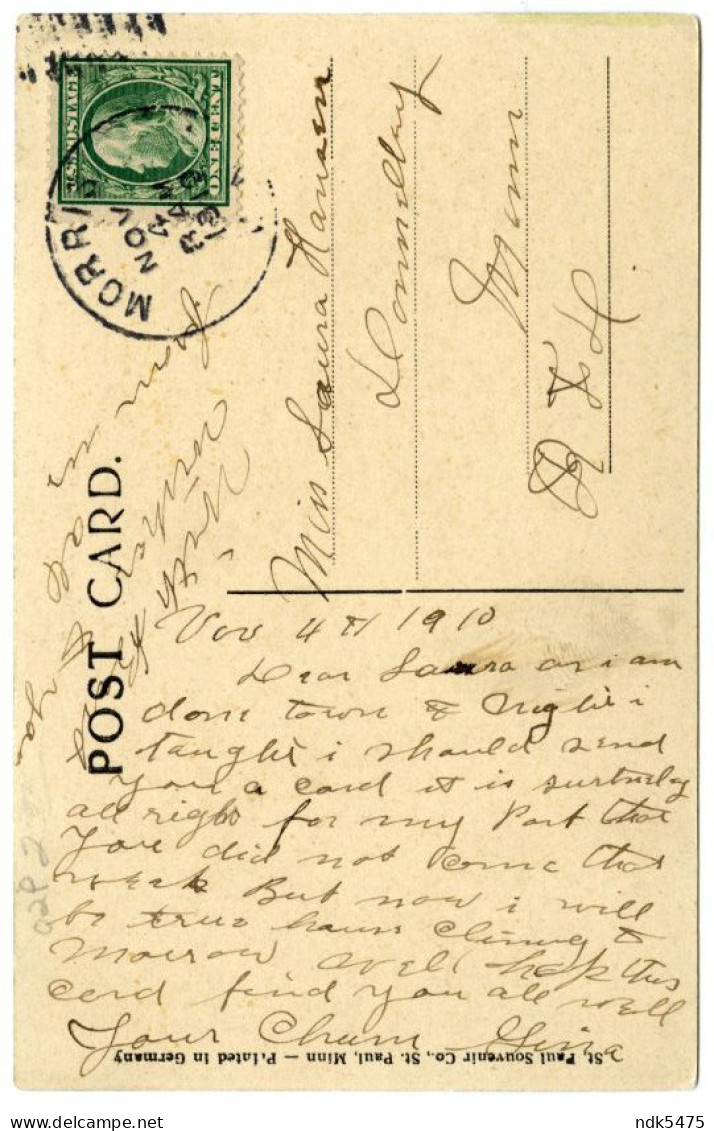 POST CARD.
MORRIS
NOV
4
1910
U.S. POSTAGE
ONE CENT
Miss Laura Hansen
Donnelley
Minn
Nov 4 th 1910
Dear Laura as i am
done town to Night i
taught i should send
you a card it is surtnley
all right for my Part that
you did not come that
week But now i will
be true hauss Clining to
Morrow well hop this
card find you all well
Your Chum Gina
St. Paul Souvenir Co., St. Paul, Minn — Printed in Germany
ndk5475